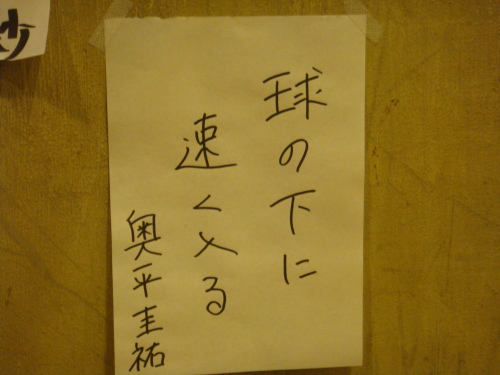 球の下に
速く入る
奥平圭祐